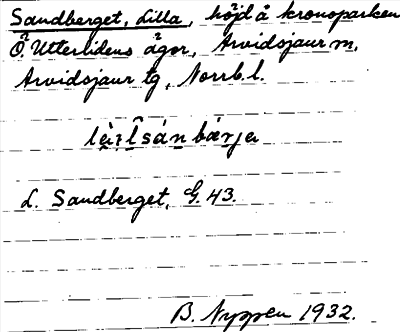 Sandberget, Lilla, höjd å kronoparken
Ö. Utterlidens ägor, Arvidsjaur sn,
Arvidsjaur tg, Norrb. l.
L. Sandberget, G. 43.
B. Nyppen 1932.